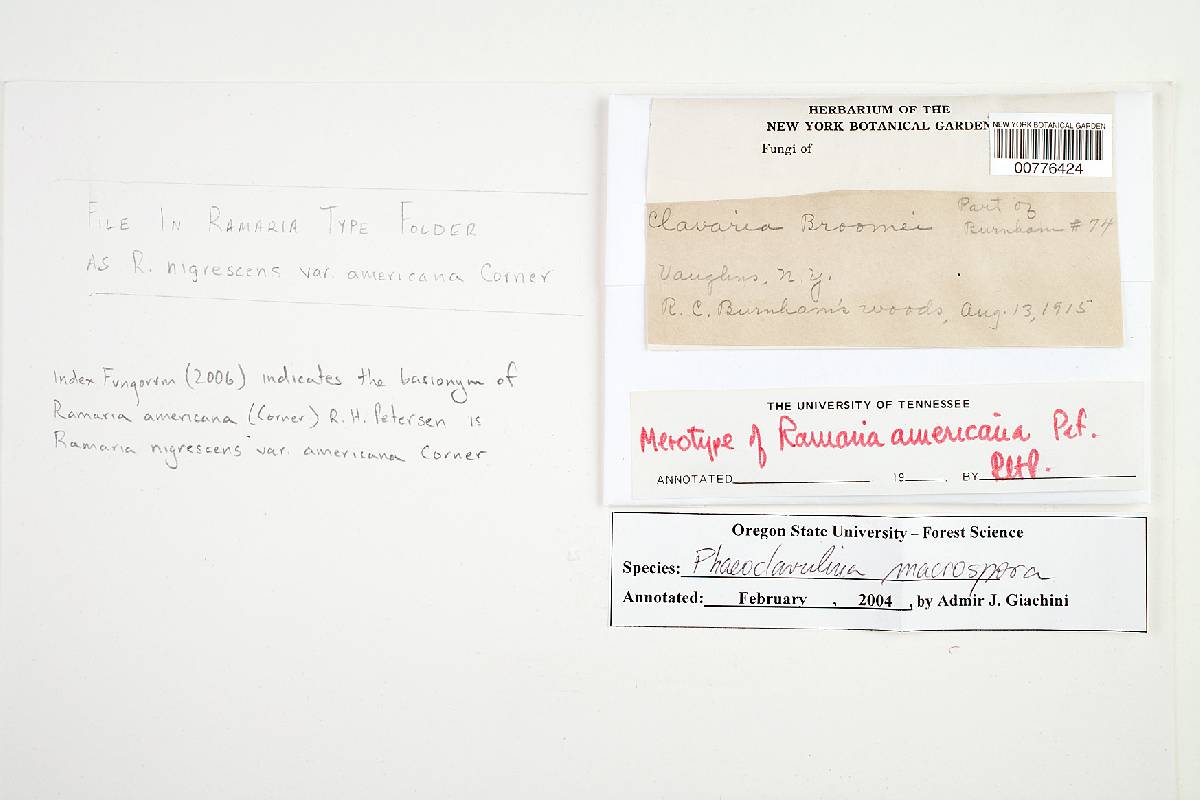 FILE IN RAMARIA TYPE FOLDER
AS R. nigrescens var. americana Corner
Index Fungorum (2006) indicates the basionym of
Ramaria americana (Corner) R. H. Petersen is
Ramaria nigrescens var. americana Corner
HERBARIUM OF THE
NEW YORK BOTANICAL GARDEN
Fungi of
NEW YORK BOTANICAL GARDEN
00776424
Clavaria Broomei
Part of
Burnham # 74
Vaughns, N.Y.
R. C. Burnham's woods, Aug. 13, 1915
THE UNIVERSITY OF TENNESSEE
Merotype of Ramaria americana Pet.
ANNOTATED 19 . BY RHP.
Oregon State University – Forest Science
Species: Phaeoclavulina macrospora
Annotated: February , 2004 , by Admir J. Giachini